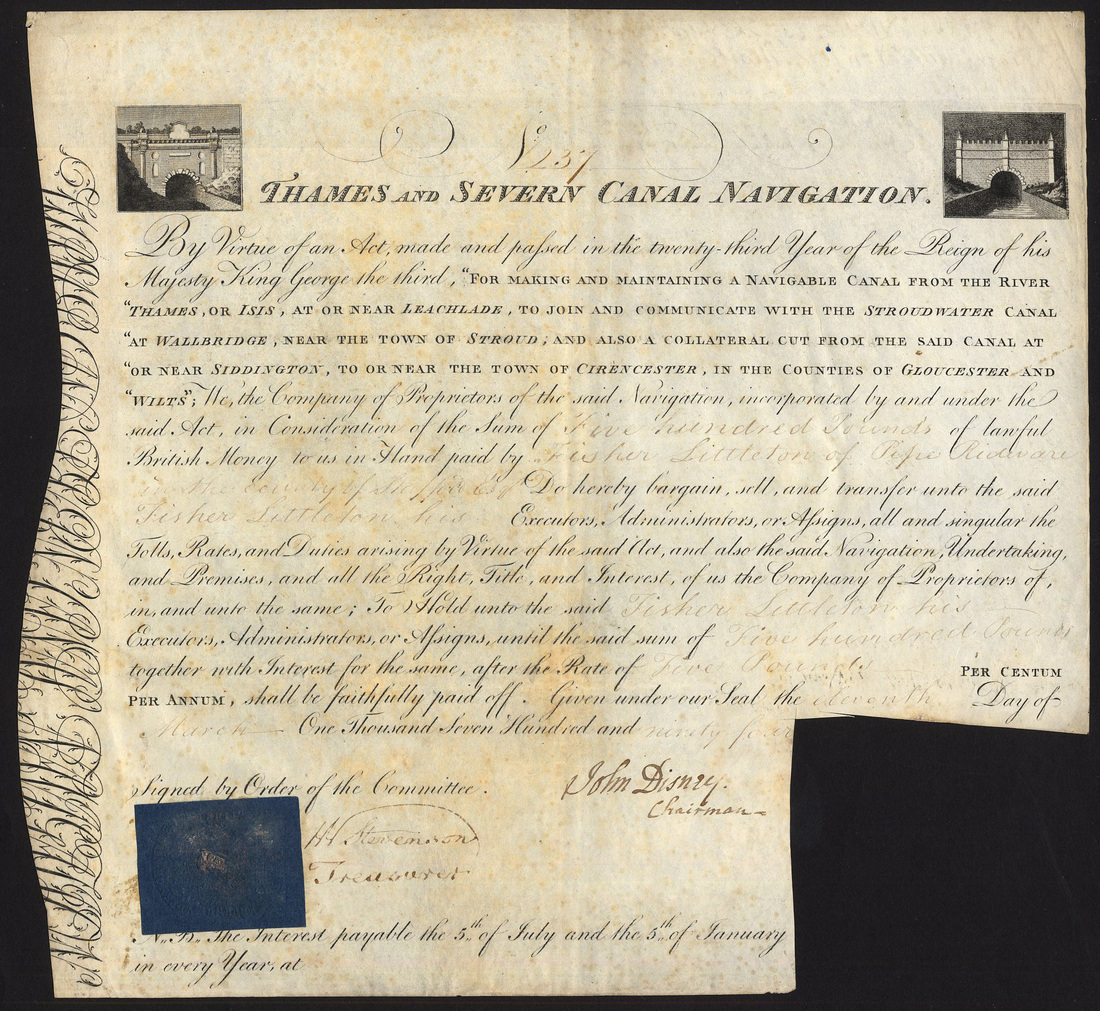 No 237
THAMES AND SEVERN CANAL NAVIGATION.
By Virtue of an Act, made and passed in the twenty-third Year of the Reign of his
Majesty King George the third, "FOR MAKING AND MAINTAINING A NAVIGABLE CANAL FROM THE RIVER
"THAMES, OR ISIS, AT OR NEAR LEACHLADE, TO JOIN AND COMMUNICATE WITH THE STROUDWATER CANAL
"AT WALLBRIDGE, NEAR THE TOWN OF STROUD; AND ALSO A COLLATERAL CUT FROM THE SAID CANAL AT
"OR NEAR SIDDINGTON, TO OR NEAR THE TOWN OF CIRENCESTER, IN THE COUNTIES OF GLOUCESTER AND
"WILTS"; We, the Company of Proprietors of the said Navigation, incorporated by and under the
said Act, in Consideration of the Sum of Five hundred Pounds of lawful
British Money to us in Hand paid by Fisher Littleton of Pipe Ridware
in the county of Do hereby bargain, sell, and transfer unto the said
Fisher Littleton his Executors, Administrators, or Assigns, all and singular the
Tolls, Rates, and Duties arising by Virtue of the said Act, and also the said Navigation, Undertaking,
and Premises, and all the Right, Title, and Interest, of us the Company of Proprietors of,
in, and unto the same; To Hold unto the said Fisher Littleton his
Executors, Administrators, or Assigns, until the said sum of Five hundred Pounds
together with Interest for the same, after the Rate of Five Pounds PER CENTUM
PER ANNUM, shall be faithfully paid off. Given under our Seal the eleventh Day of
March One Thousand Seven Hundred and ninety four
Signed by Order of the Committee.
John Disney.
Chairman
H Stevenson
Treasurer
N.B. The Interest payable the 5th of July and the 5th of January
in every Year, at